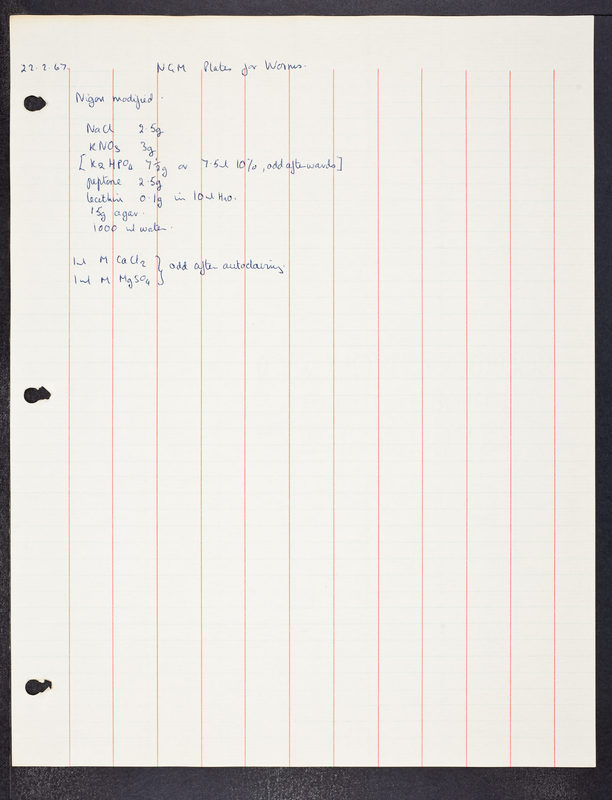 22.2.67. NGM Plates for Worms.
Nigon modified.
NaCl 2.5g
KNO3 3g
[K2HPO4 7½g or 7.5ml 10%, add afterwards]
peptone 2.5g
lecithin 0.1g in 10ml H2O.
15g agar.
1000 ml water.
1ml M CaCl2 } add after autoclaving.
1ml M MgSO4